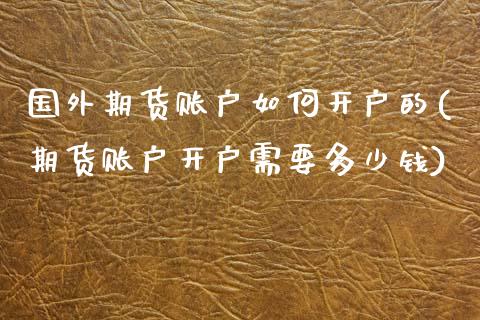 国外期货账户如何开户的(
期货账户开户需要多少钱)